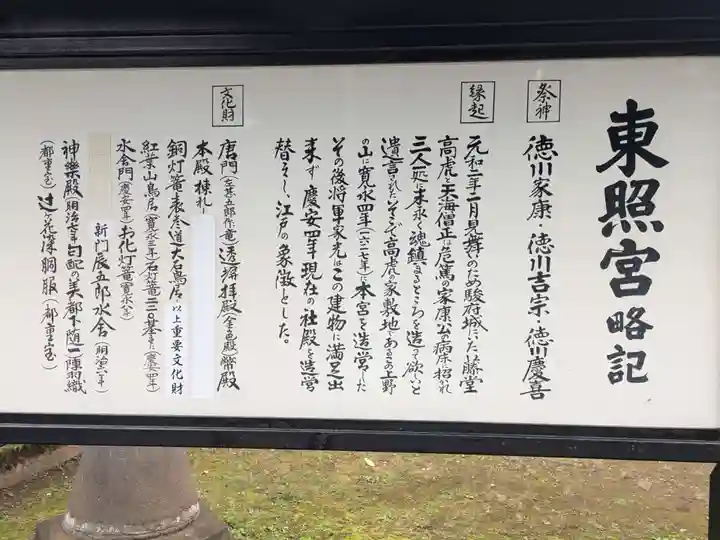 東照宮略記
祭神
徳川家康・徳川吉宗・徳川慶喜
縁起
元和二年二月見舞のため駿府城にいた藤堂
高虎と天海僧正は危篤の家康公の病床に招かれ
三人一処に末永く魂鎮まるところを造って欲しいと
遺言された。そこで高虎の家敷地であるこの上野
の山に寛永四年(一六二七年)に本宮を造営した
その後将軍家光はこの建物に満足出
来ず慶安四年現在の社殿を造営
替えし、江戸の象徴とした。
文化財
唐門(左甚五郎作竜)透塀拝殿(金色殿)幣殿
本殿棟札
銅灯篭 表参道大石鳥居 以上重要文化財
紅葉山鳥居(寛永三年)石灯篭二三〇基(慶安四年)
水舎門(慶安四年)お化灯篭(寛永八年)
新門辰五郎水舎(明治 年)
神楽殿(明治七年)勾配の美都下随一 陣羽織
(都重宝)辻ヶ花染胴服(都重宝)